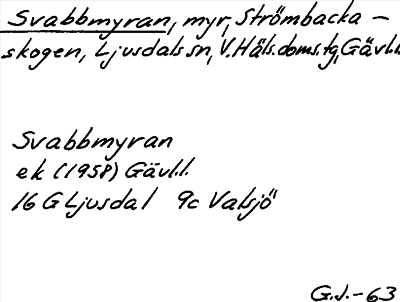 Svabbmyran, myr, Strömbacka –
skogen, Ljusdals sn, V. Häls. doms. tg, Gävl.l.
Svabbmyran
ek (1958) Gävl.l.
16 G Ljusdal 9c Valsjö
G.J. – 63